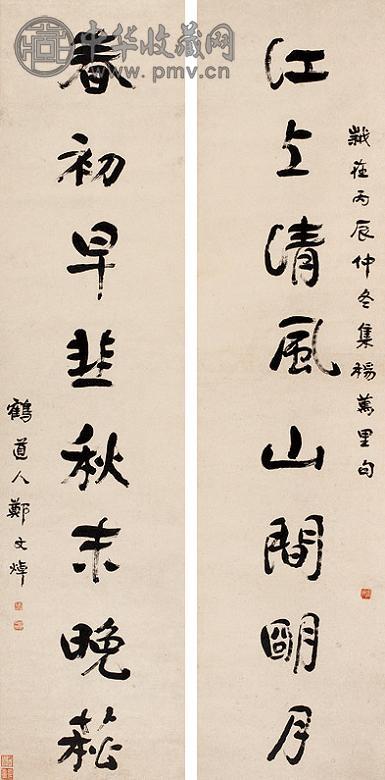 歲在丙辰仲冬集楊萬里句
江上清風山間朙月
春初早韭秋末晚菘
鶴道人鄭文焯
中华收藏网
www.pmv.cn